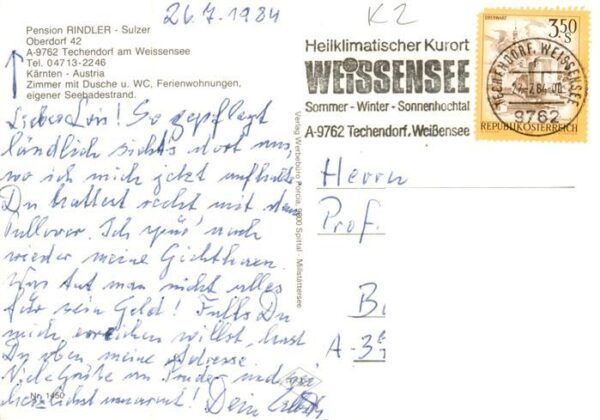 26.7.1984
K2
Pension RINDLER - Sulzer
Oberdorf 42
A-9762 Techendorf am Weissensee
Tel. 04713-2246
Kärnten - Austria
Zimmer mit Dusche u. WC, Ferienwohnungen,
eigener Seebadestrand.
Lieber! So gepflegt
ländlich sieht's dort aus,
wo ich mich jetzt aufhalte.
Du hattest recht mit dem
Pullover. Ich spür' auch
wieder meine
Was tut man nicht alles
für sein Geld! Falls Du
mich erreichen willst, hast
Du oben meine Adresse.
Viele Grüße an und
herzlichst umarmt! Dein
Nr. 1450
Verlag Werbebüro Porcia, 9800 Spittal - Millstättersee
Heilklimatischer Kurort
WEISSENSEE
Sommer - Winter - Sonnenhochtal
A-9762 Techendorf, Weißensee
OBERWART
3.50 S
REPUBLIK ÖSTERREICH
TECHENDORF, WEISSENSEE
9762
Herrn
Prof.
B
A-3